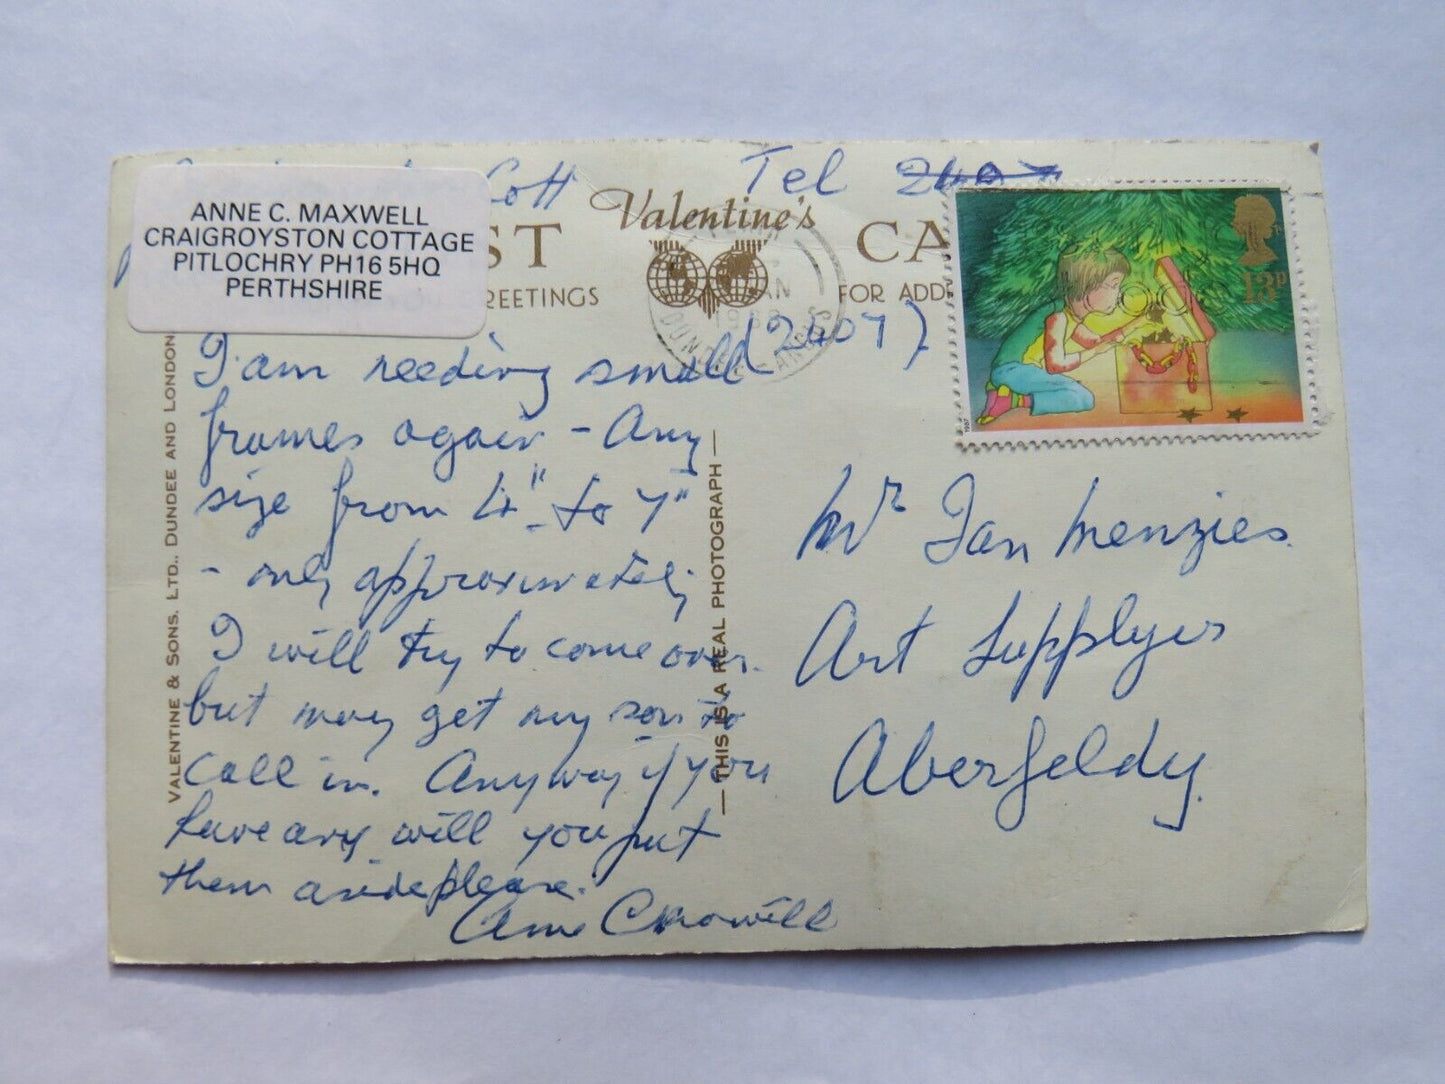 Cott
Tel 2407
ANNE C. MAXWELL
CRAIGROYSTON COTTAGE
PITLOCHRY PH16 5HQ
PERTHSHIRE
Valentine's
ST CA
REETINGS
FOR ADD
(2407)
13P
1987
I am needing small
frames again - Any
size from 4" to 7"
- only approximately
I will try to come over.
but may get my son to
call in. Anyway if you
have any will you put
them aside please.
Anne C Maxwell
Mr Ian Menzies.
Art Supplyers
Aberfeldy.
VALENTINE & SONS. LTD., DUNDEE AND LONDON
— THIS IS A REAL PHOTOGRAPH —